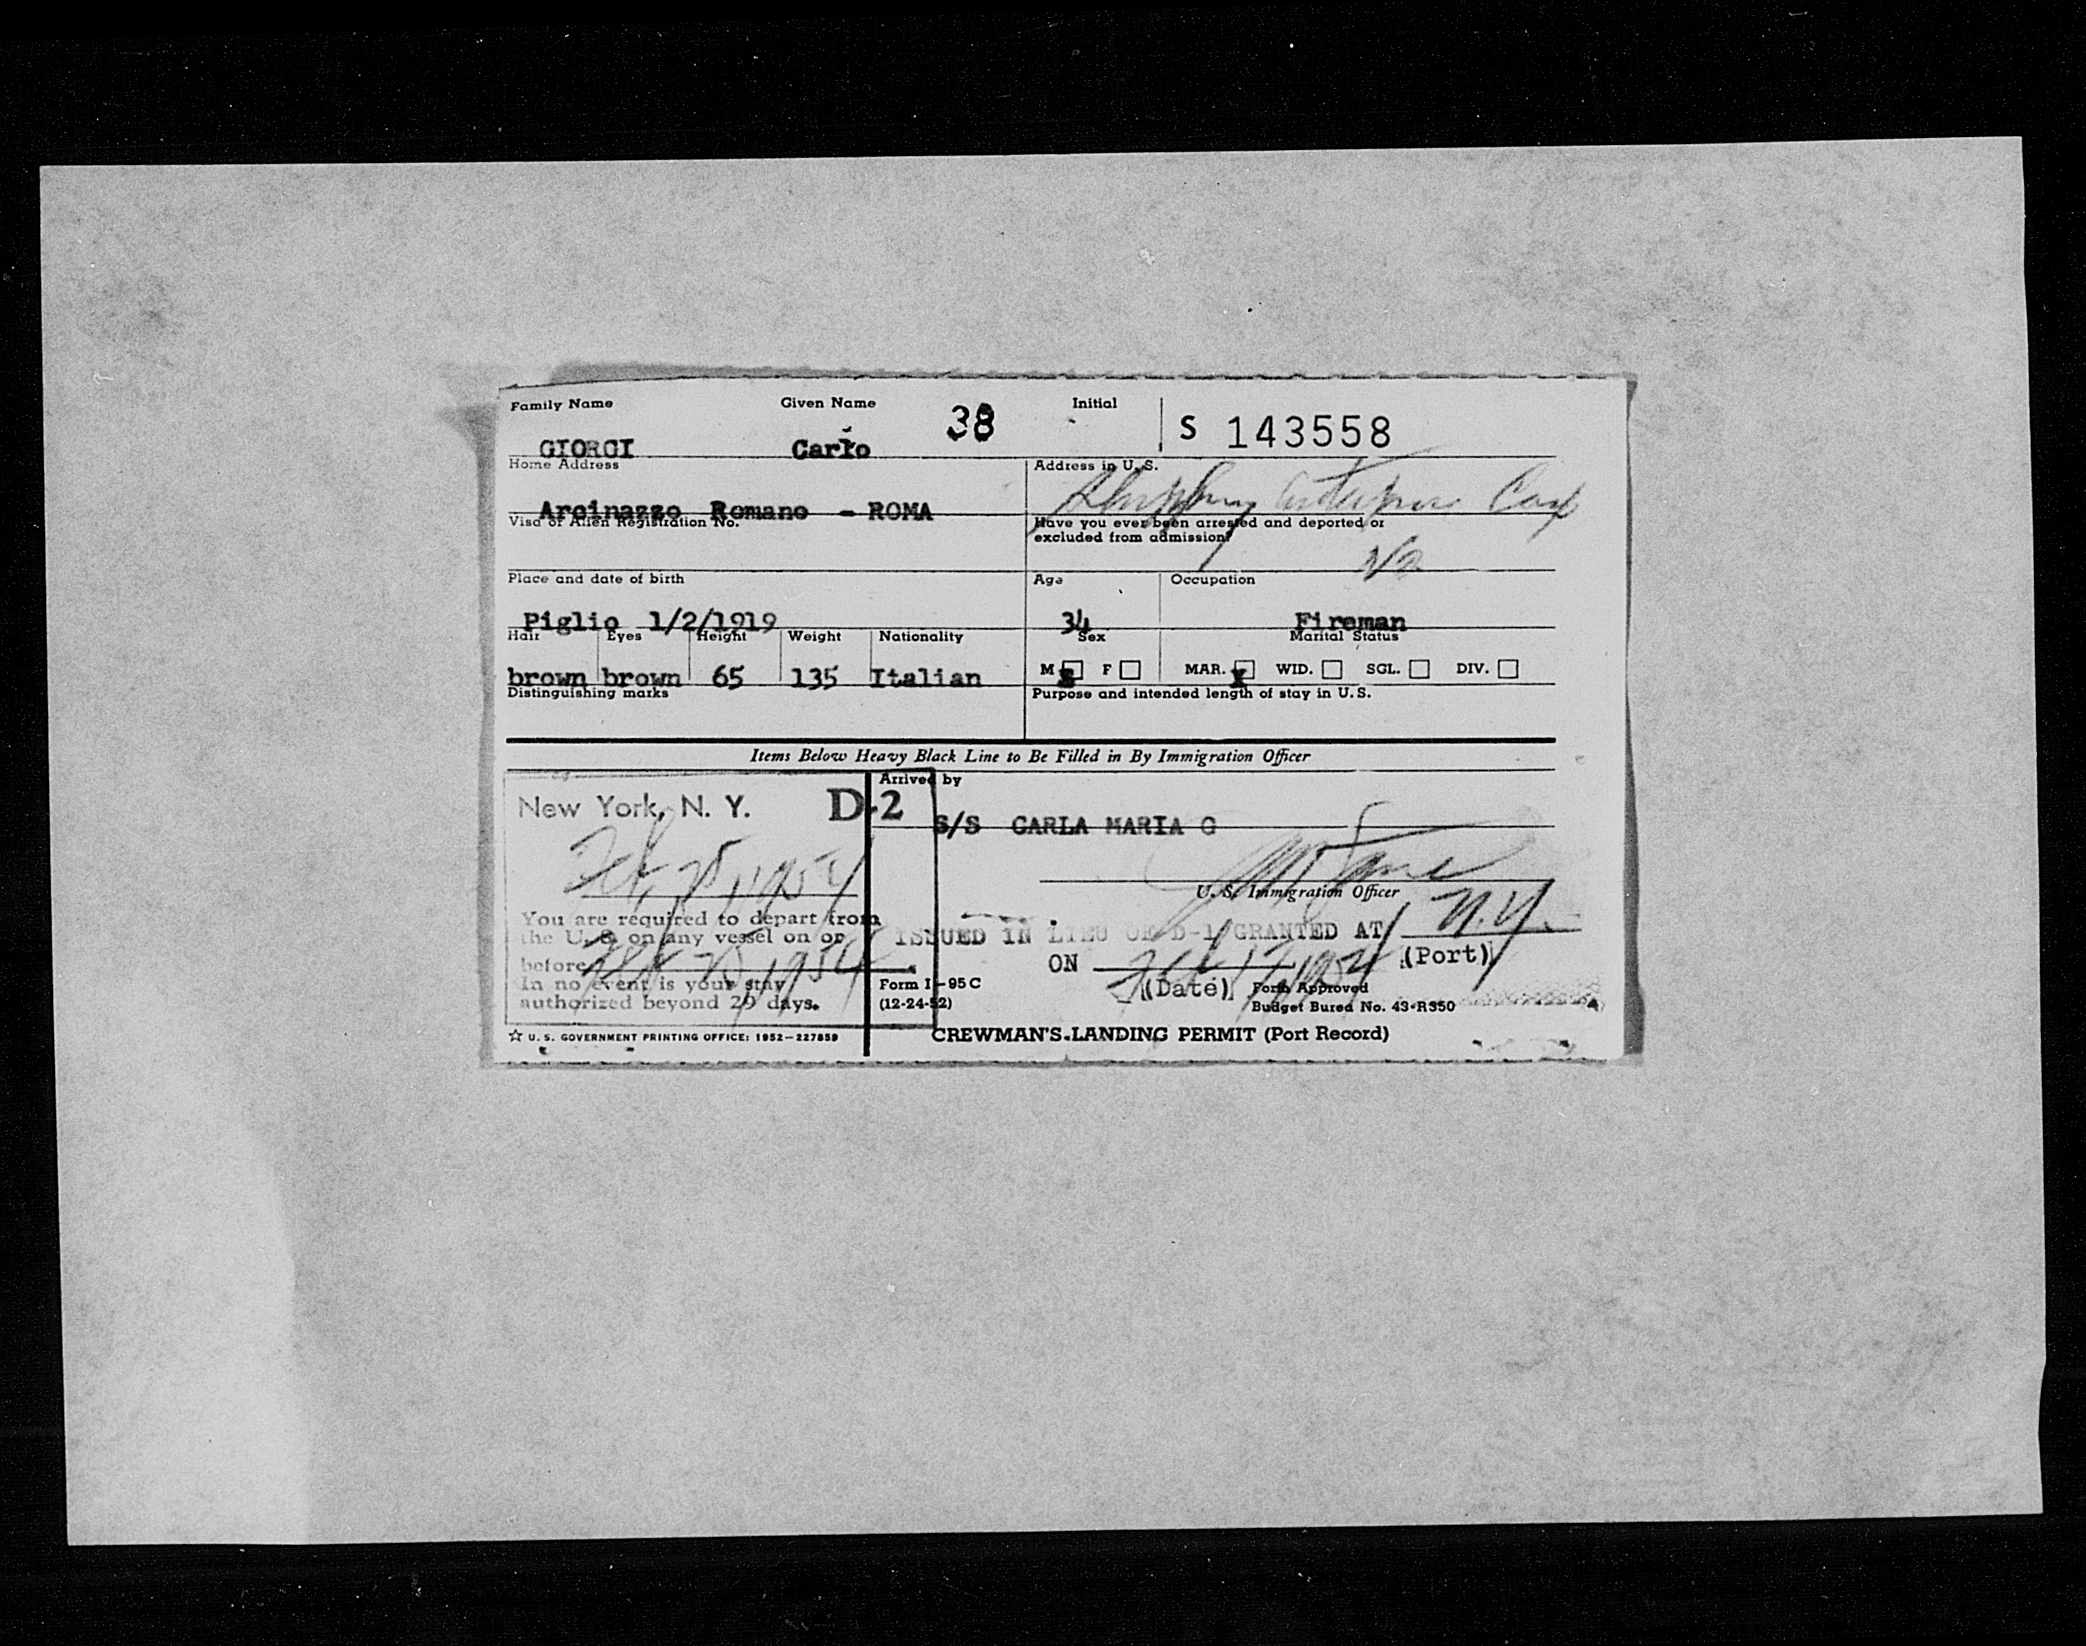 Family Name Given Name 38 Initial S 143558
GIORGI Carlo
Home Address Address in U. S.
Arcinazzo Romano - ROMA Corp
Visa or Alien Registration No. Have you ever been arrested and deported or
excluded from admission?
No
Place and date of birth Age Occupation
Piglio 1/2/1919 34 Fireman
Hair Eyes Height Weight Nationality Sex Marital Status
brown brown 65 135 Italian M X F MAR. X WID. SGL. DIV.
Distinguishing marks Purpose and intended length of stay in U. S.
Items Below Heavy Black Line to Be Filled in By Immigration Officer
Arrived by
New York, N. Y. D-2
S/S CARLA MARIA G
Feb. 25, 1954
U. S. Immigration Officer
You are required to depart from
the U. S. on any vessel on or
before
In no event is your stay
authorized beyond 29 days.
ISSUED IN LIEU OF D-1 GRANTED AT N.Y.
(Port)
ON Feb 17, 1954
(Date)
Form I-95 C
(12-24-52)
Form Approved
Budget Bureau No. 43-R350
☆ U. S. GOVERNMENT PRINTING OFFICE: 1952—227859
CREWMAN'S LANDING PERMIT (Port Record)